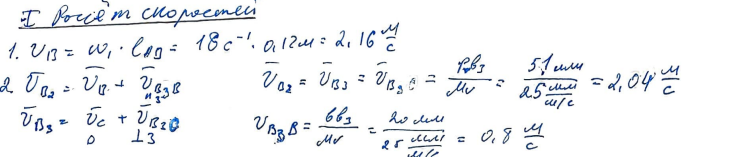 I Расчёт скоростей
1. V_B = ω₁ · l_AB = 18 с⁻¹ · 0,12 м = 2,16 м/с
2. V̄_B₂ = V̄_B + V̄_B₃B V̄_B₂ = V̄_B₃ = V̄_B₃C = Pв₃/Mv = 51 мм / 25 мм/м/с = 2,04 м/с
н 3
V̄_B₃ = V̄_C + V̄_B₃C V_B₃B = вв₃/Mv = 20 мм / 25 мм/м/с = 0,8 м/с
0 ⊥3